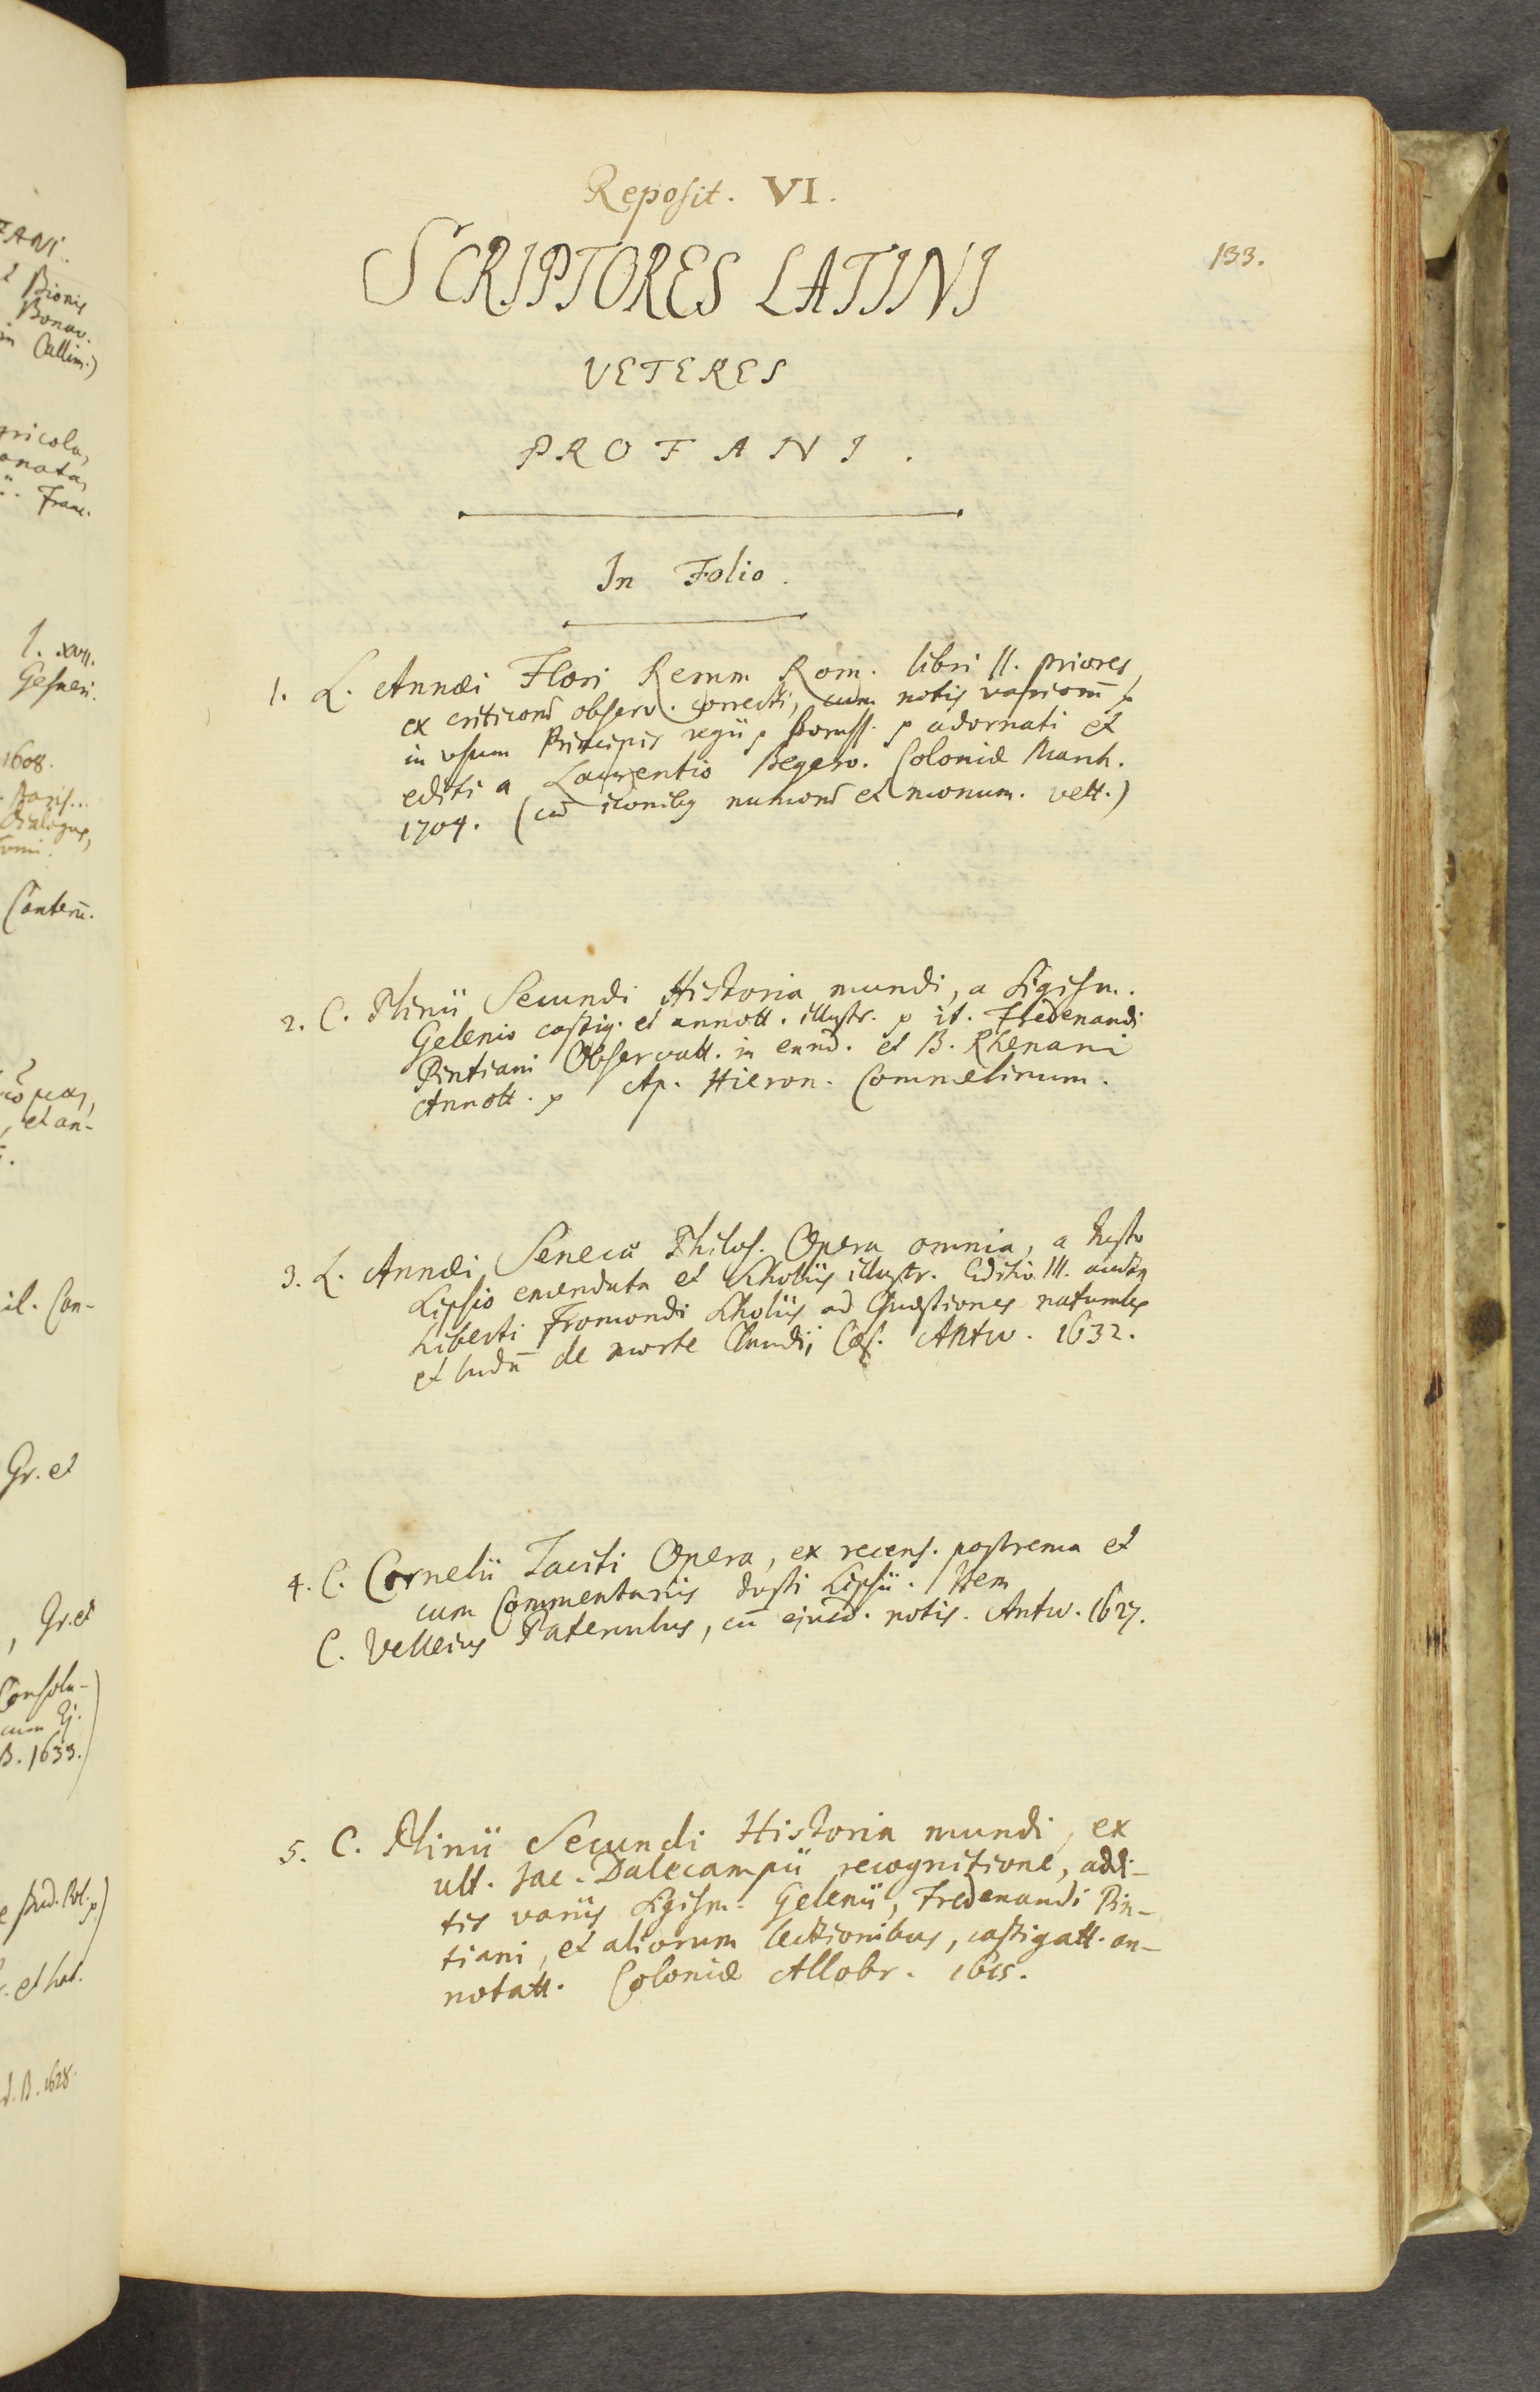 Reposit. VI.
133.
SCRIPTORES LATINI
VETERES
PROFANI.
In Folio.
1. L. Annæi Flori Rerum Rom. libri II. priores,
ex criticorũ observ. correcti, cum notis variorũ p
in usum Principis regii p Boruss. p adornati et
editi a Laurentio Begero. Coloniæ March.
1704. (cũ iconibus numorũ et monum. vett.)
2. C. Plinii Secundi Historia mundi, a Sigism.
Gelenio castig. et annott. illustr. p it. Fredenandi
Pintiani Observatt. in eund. et B. Rhenani
Annott. p Ap. Hieron. Commelinum.
3. L. Annæi Senecæ Philos. Opera omnia, a Justo
Lipsio emendata et Scholiis illustr. Editio III. aucta
Liberti Fromondi Scholiis ad Quæstiones naturales
et ludũ de morte Claudii Cæs. Antw. 1632.
4. C. Cornelii Taciti Opera, ex recens. postrema et
cum Commentariis Justi Lipsii. Item
C. Velleius Paterculus, cũ ejusd. notis. Antw. 1627.
5. C. Plinii Secundi Historia mundi, ex
ult. Jac. Dalecampii recognitione, addi-
tis variis Sigism. Gelenii, Fredenandi Pin-
tiani, et aliorum lectionibus, castigatt. an-
notatt. Coloniæ Allobr. 1615.